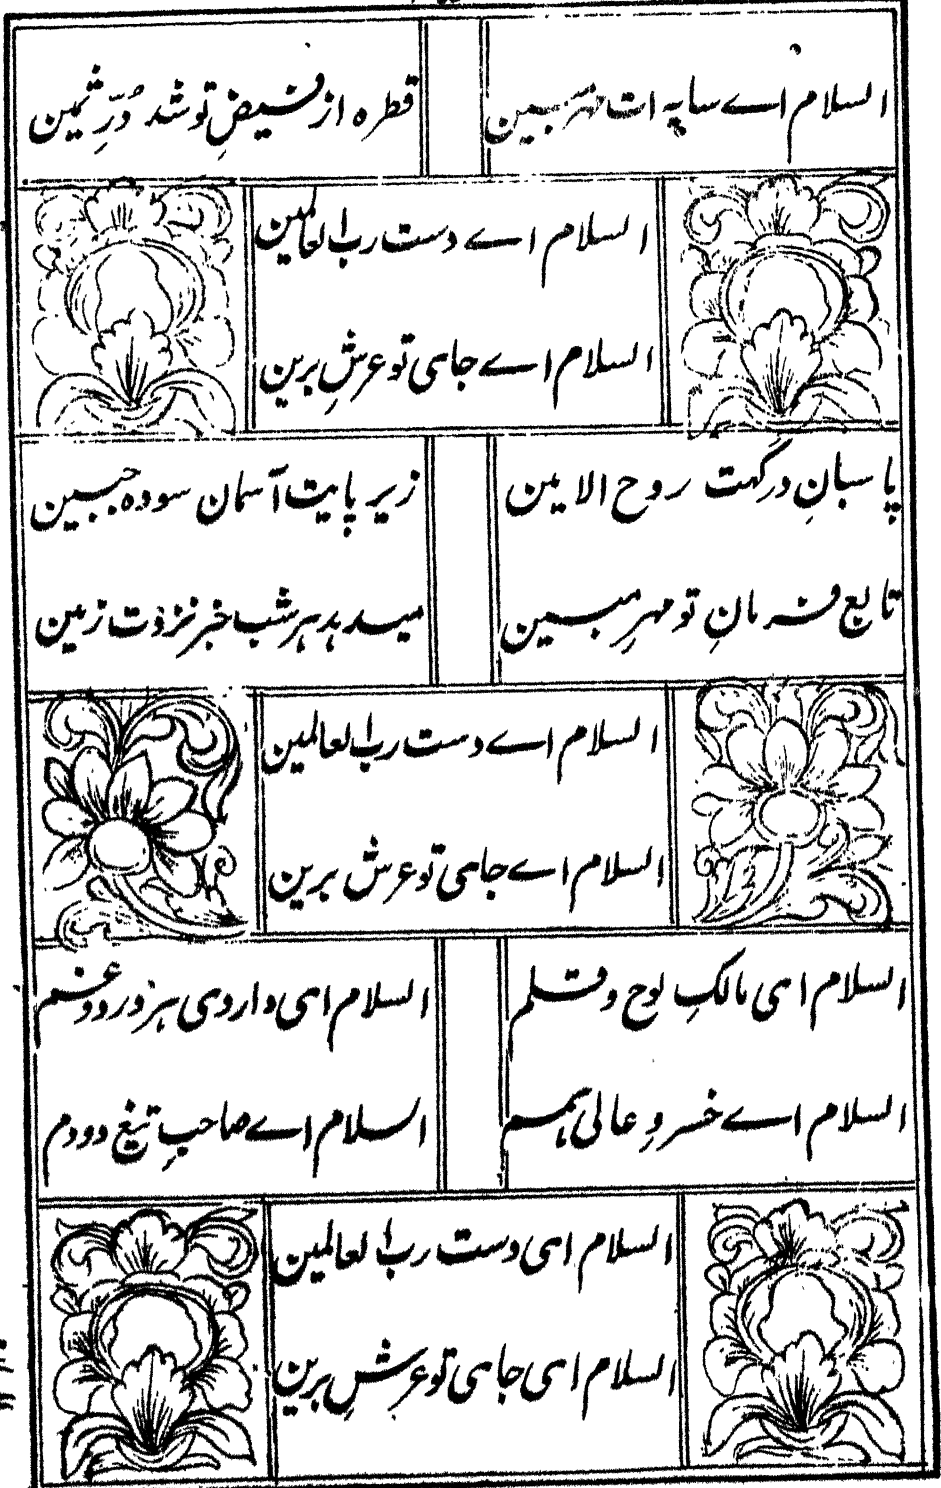 السلام اے سایه ات مهر مبین
قطره از فیضِ تو شد دُرِّ ثمین
السلام اے دست رب العالمین
السلام اے جای تو عرشِ برین
پاسبانِ درگهت روح الامین
زیر پایت آسمان سوده جبین
تابع فرمانِ تو مهرِ مبین
میدهد هر شب خبر نزدت زمین
السلام اے دست رب العالمین
السلام اے جای تو عرش برین
السلام ای مالکِ لوح و قلم
السلام ای داروی هر درد و غم
السلام اے خسروِ عالی همم
السلام اے صاحبِ تیغ دودم
السلام ای دست رب العالمین
السلام ای جای تو عرشِ برین